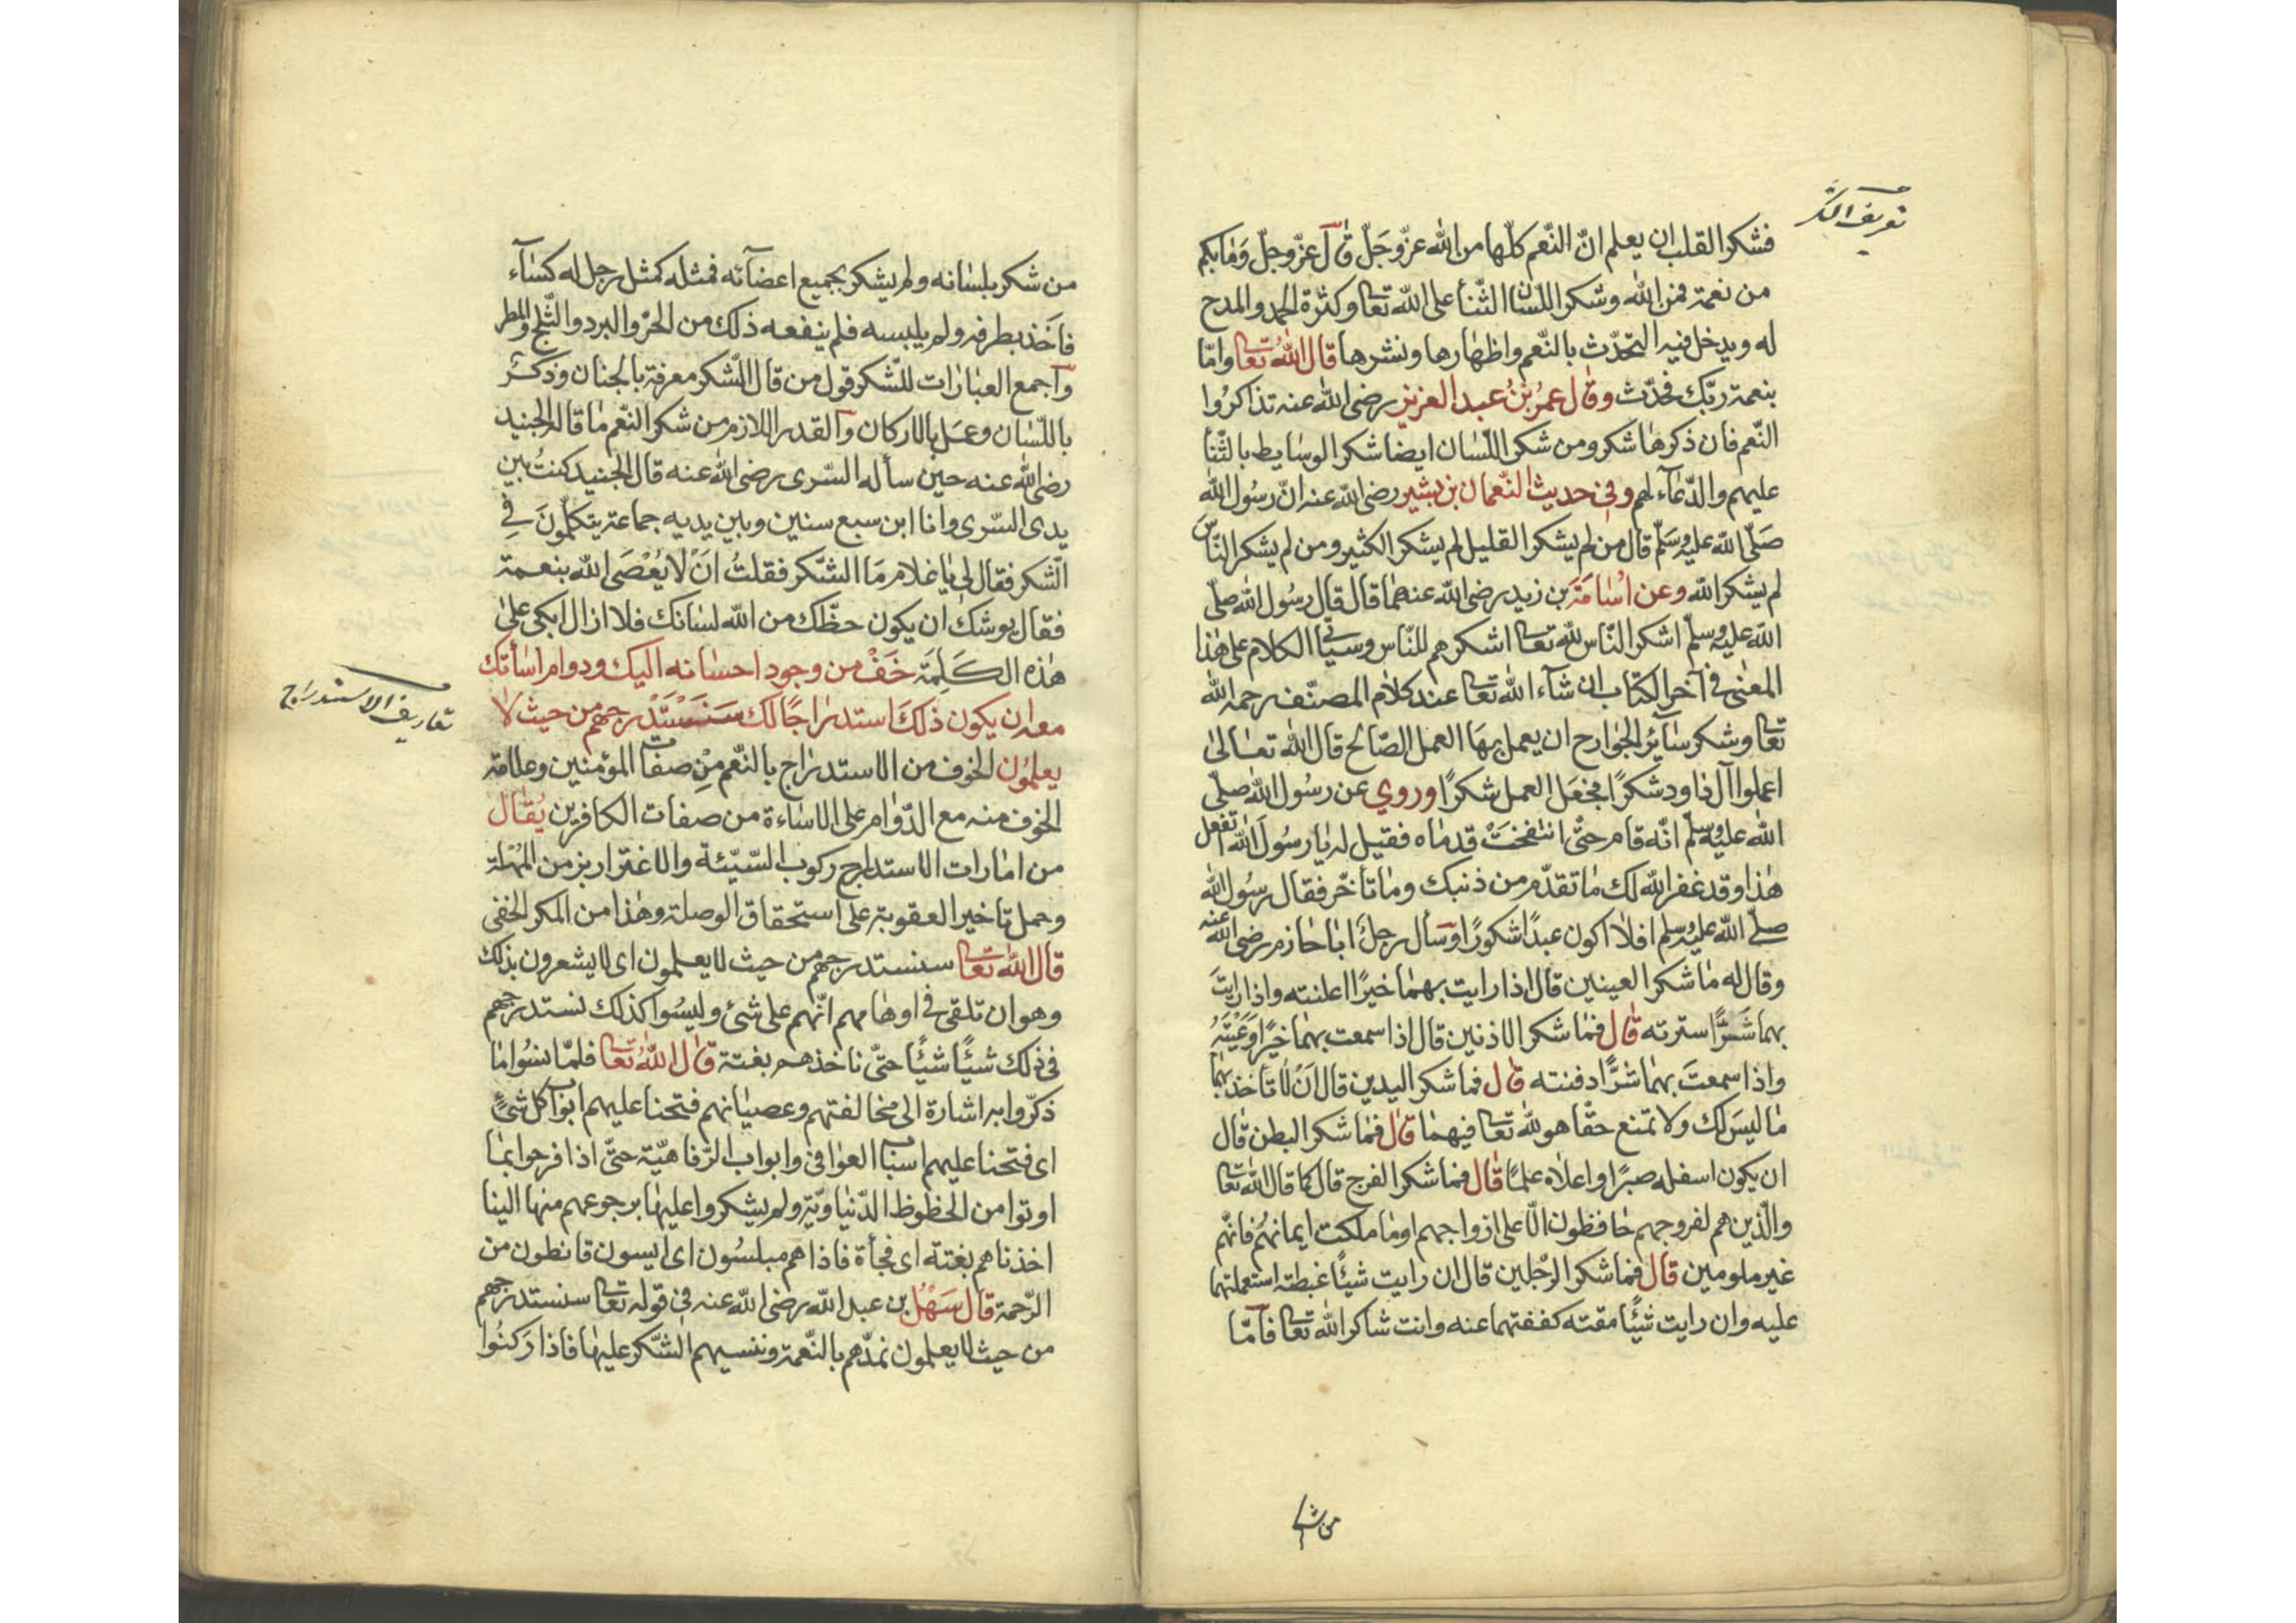 تعريف الشكر
فشكر القلب ان يعلم انّ النّعم كلّها من الله عزّ وجَلّ قال عزّ وجلّ وَمَا بكم
من نعمة فمن الله وشكر اللّسان الثّنأ على الله تعا وكثرة الحمد والمدح
له ويدخل فيه التحدّث بالنّعم واظهارها ونشرها قال الله تعا وامّا
بنعمة ربّك فحدّث وقال عمرُ بنُ عبد العزيز رضى الله عنه تذاكرُوا
النّعم فان ذكرها شكر ومن شكر اللّسان ايضا شكر الوسايط بالثّنأ
عليهم والدّعآء لهم وفى حديث النّعمان بن بشير رضى الله عنه انّ رسُول الله
صَلّى الله عليه وسَلّم قال من لم يشكر القليل لم يشكر الكثير ومن لم يشكر النّاسَ
لم يشكر الله وعن اُسَامَةَ بن زيد رضى الله عنهما قال قال رسُول الله صلّى
الله عليه وسلّم اشكر النّاس لله تعا اشكرهم للنّاس وسيأتى الكلام على هذا
المعنى فى آخر الكتاب ان شآء الله تعا عند كلام المصنّف رحمه الله
تعا وشكر سآئر الجوارح ان يعمل بهَا العمل الصّالح قال الله تعالىٰ
اعملوا آل داود شكرًا فجعَل العمل شكرًا وروي عن رسُول الله صلّى
الله عليه وسلّم انّه قام حتّى انتفختْ قدماه فقيل له يا رسُولَ الله اتفعل
هذا وقد غفر الله لك ما تقدّم من ذنبك وما تأخّر فقال رسُول الله
صلّى الله عليه وسلم افلا اكون عبدًا شكورًا وسأل رجلٌ ابا حازم رضى الله عنه
وقال له ما شكر العينين قال اذا رايت بهما خيرًا اعلنته واذا رايتَ
بهما شَرًّا سترته قال فما شكر الاذنين قال اذا سمعت بهما خيرًا وَعَيْتَهُ
واذا سمعتَ بهما شرًّا دفنته قال فما شكر اليدين قال اَنْ لا تاخذ بهما
ما ليسَ لك ولا تمنع حقًّا هو لله تعا فيهما قال فما شكر البطن قال
ان يكون اسفله صبرًا واعلاه علمًا قال فما شكر الفرج قال كما قال الله تعا
والّذين هم لفروجهم حافظون الّا على ازواجهم اوما ملكت ايمانهُم فانّهم
غير ملومين قال فما شكر الرّجلين قال ان رايت شيئًا غبطته استعملتهما
عليه وان رايت شيئًا مقته كففتهما عنه وانت شاكر الله تعا فامّا
من شكر
من شكر بلسانه ولم يشكر بجميع اعضآئه فمثله كمثل رجل له كسآء
فاخَذ بطرفه ولم يلبسه فلم ينفعه ذلك من الحرّ والبرد والثّلج والمطر
واجمع العبارات للشّكر قول من قال الشّكر معرفة بالجنان وذكرٌ
باللّسان وعمل بالاركان والقدر اللازم من شكر النّعم ما قاله الجنيد
رضى الله عنه حين سأله السّرى رضى الله عنه قال الجنيد كنتُ بين
يدى السّرى وانا ابن سبع سنين وبين يديه جماعة يتكلّمونَ فِي
الشّكر فقال لى يا غلام مَا الشّكر فقلتُ اَنْ لا يُعْصَى الله بنعمة
فقال يوشك ان يكون حظّك من الله لسانك فلا ازال ابكى على
هذه الكَلِمَة خَفْ من وجود احسانه اليك ودوام اسأتك
معه ان يكون ذلكَ استدراجًا لك سَنَسْتَدرجهم من حيث لا
يعلمُون الخوف من الاستدراج بالنّعم مِنْ صفات المؤمنين وعلامة
تعاريف الاستدراج
الخوف منه مع الدّوام على الاساءة من صفات الكافرين يُقال
من امارات الاستدراج ركوب السّيّئة والاغترار بزمن المُهْلة
وحمل تاخير العقوبة على استحقاق الوصلة وهذا من المكر الخفى
قال الله تعا سنستدرجهم من حيث لا يعلمون اى لا يشعرون بذلك
وهو ان تلقى فى اوهامهم انّهم على شئ وليسُوا كذلك نستدرجهم
فى ذلك شيئًا شيئًا حتّى ناخذهم بغتة قال اللهُ تعا فلمّا نسُوا ما
ذكّروا به اشارة الى مخالفتهم وعصيانهم فتحنا عليهم ابواب كل شئٍ
اى فتحنا عليهم اسباب العوافى وابواب الرّفاهيّة حتّى اذا فرحوا بما
اوتوا من الحظوظ الدّنياويّة ولم يشكروا عليها برجوعهم منها الينا
اخذناهم بغتة اى فجأة فاذا هم مبلسُون اى آيسون قانطون من
الرّحمة قال سَهْلُ بن عبد الله رضى الله عنه فى قوله تعا سنستدرجهم
من حيث لا يعلمون نمدّهم بالنّعمة وننسيهم الشّكر عليها فاذا رَكنُوا